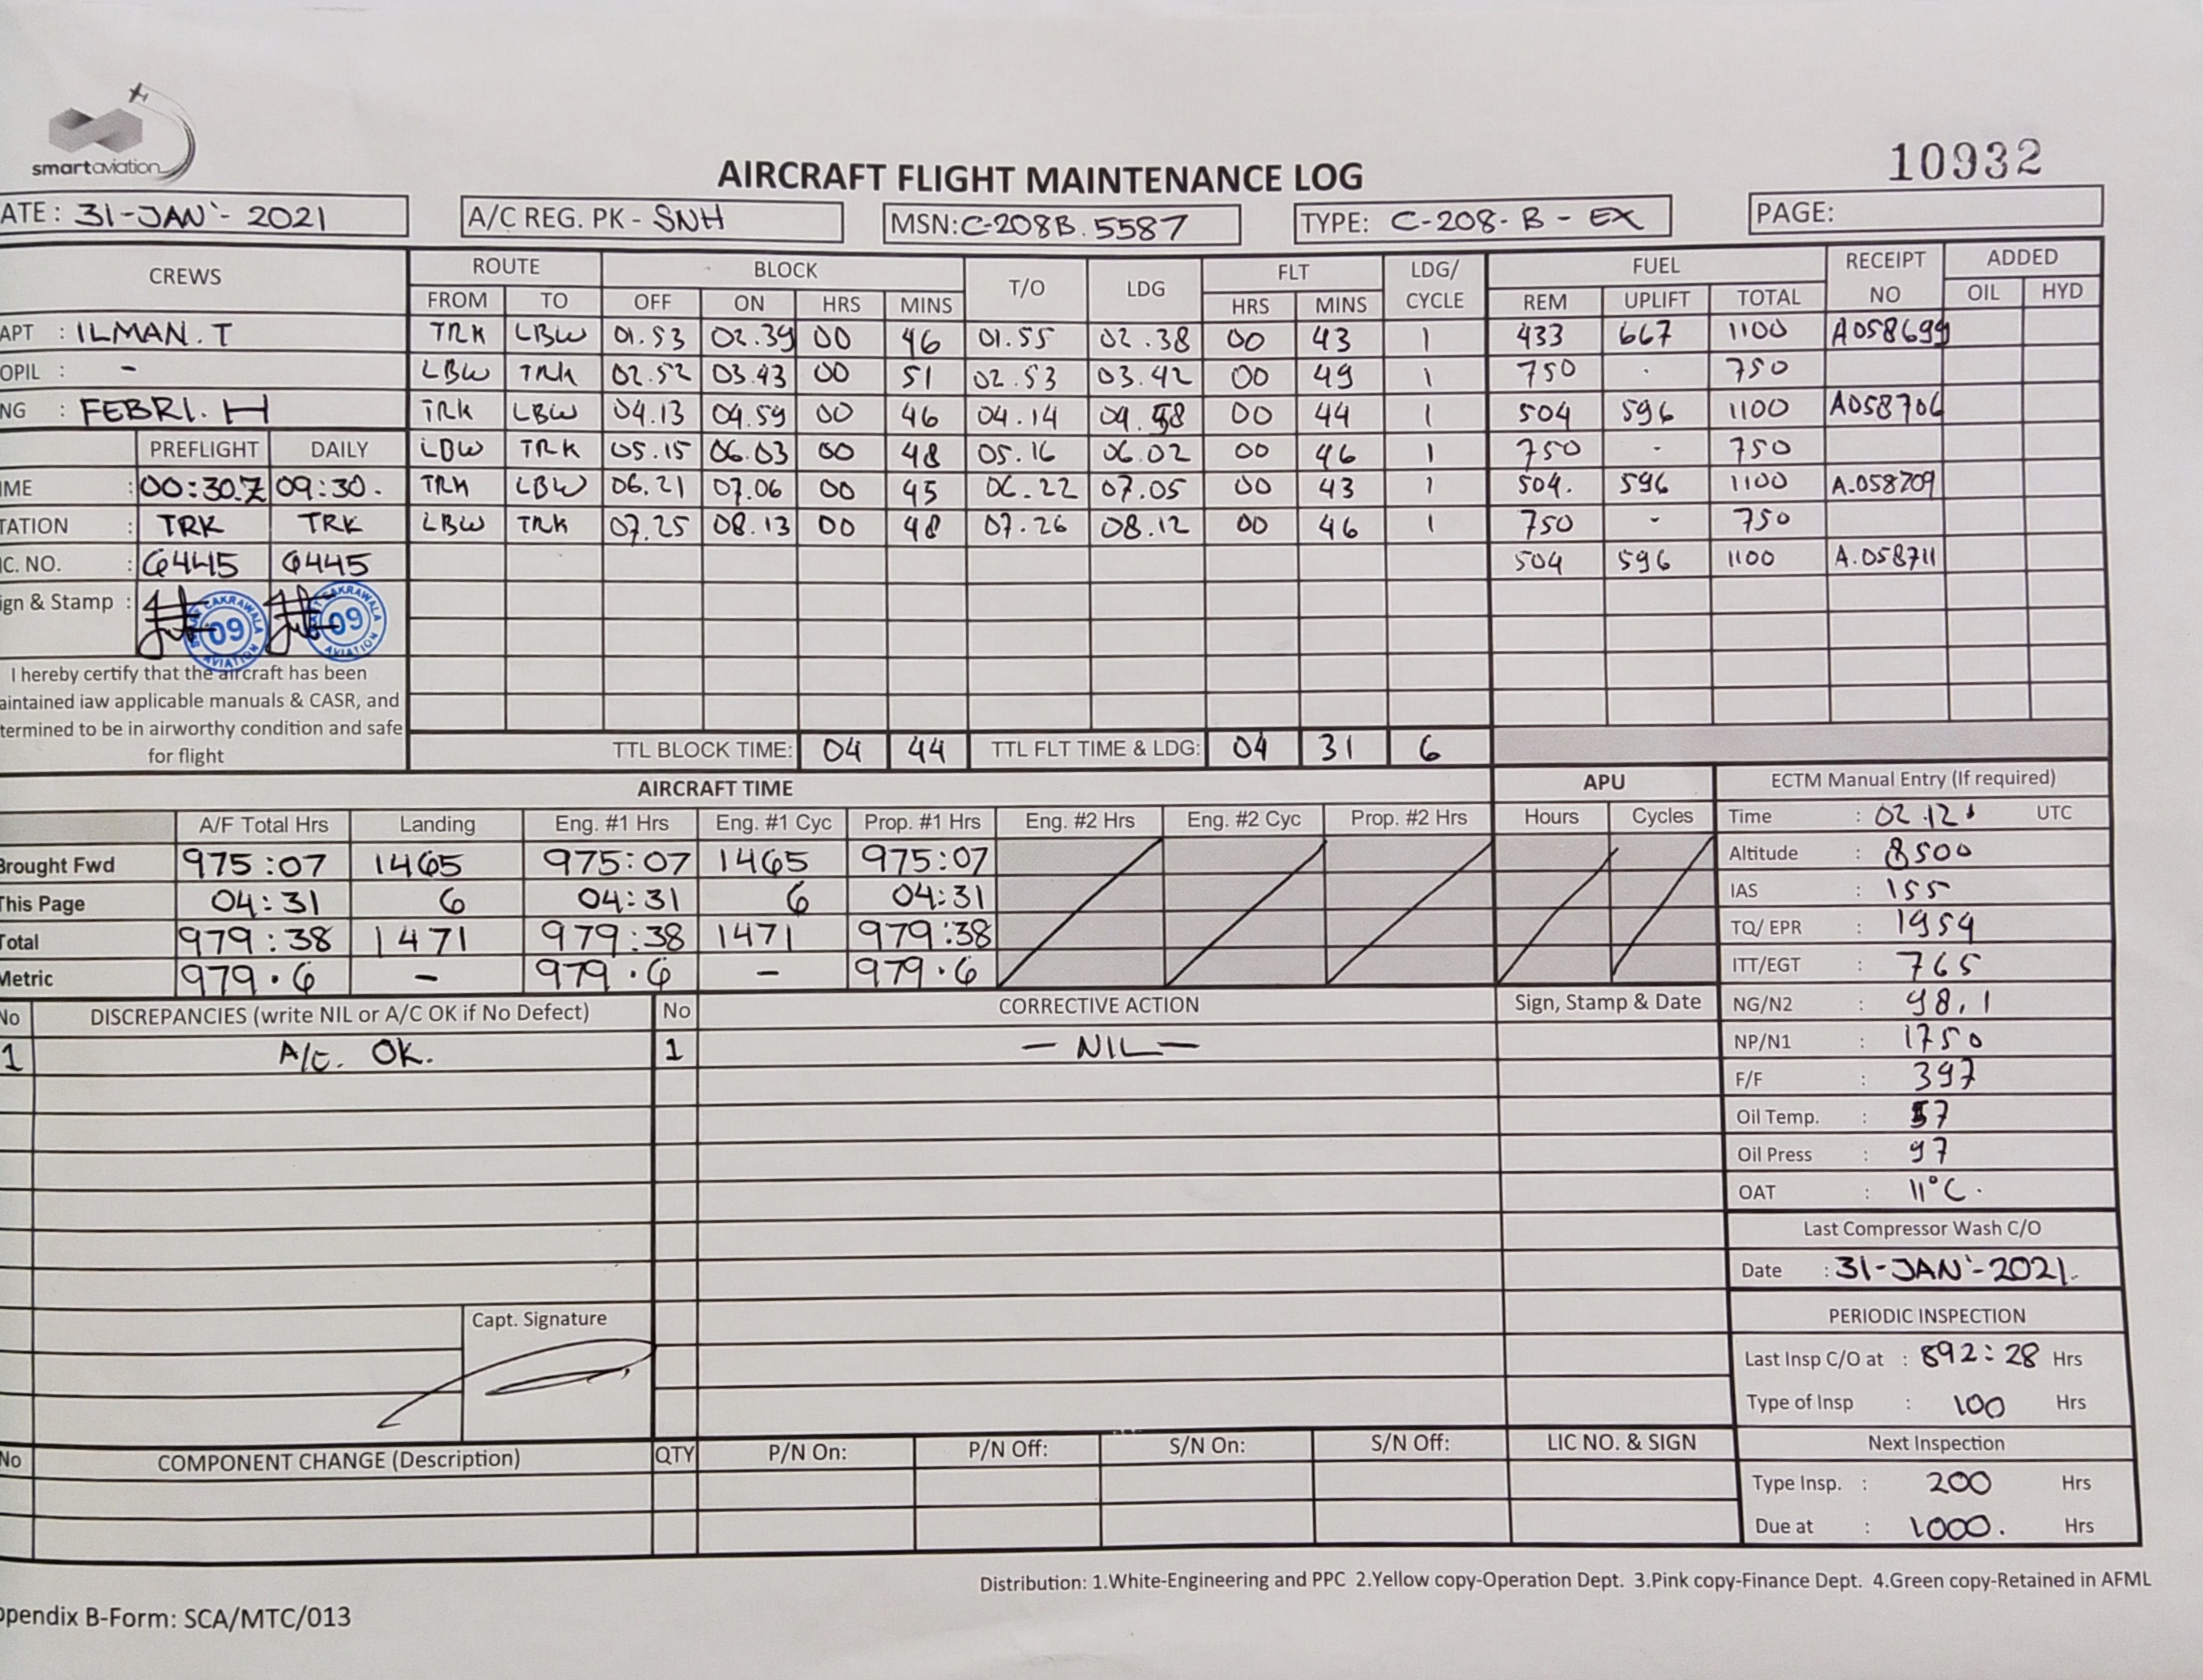 smartaviation
10932
AIRCRAFT FLIGHT MAINTENANCE LOG
ATE : 31-JAN'- 2021 A/C REG. PK - SNH MSN: C-208B.5587 TYPE: C-208-B-EX PAGE:
CREWS ROUTE BLOCK T/O LDG FLT LDG/ CYCLE FUEL RECEIPT NO ADDED
FROM TO OFF ON HRS MINS HRS MINS REM UPLIFT TOTAL OIL HYD
APT : ILMAN.T TRK LBW 01.53 02.39 00 46 01.55 02.38 00 43 1 433 667 1100 A058699
OPIL : - LBW TRK 02.52 03.43 00 51 02.53 03.42 00 49 1 750 . 750
NG : FEBRI.H TRK LBW 04.13 04.59 00 46 04.14 04.58 00 44 1 504 596 1100 A058706
PREFLIGHT DAILY LBW TRK 05.15 06.03 00 48 05.16 06.02 00 46 1 750 - 750
IME : 00:30.Z 09:30. TRK LBW 06.21 07.06 00 45 06.22 07.05 00 43 1 504. 596 1100 A.058709
TATION : TRK TRK LBW TRK 07.25 08.13 00 48 07.26 08.12 00 46 1 750 - 750
C. NO. : 6445 6445 504 596 1100 A.058711
ign & Stamp : CAKRAWALA 09 AVIATION CAKRAWALA 09 AVIATION
I hereby certify that the aircraft has been
aintained iaw applicable manuals & CASR, and
termined to be in airworthy condition and safe
for flight
TTL BLOCK TIME: 04 44 TTL FLT TIME & LDG: 04 31 6
AIRCRAFT TIME APU ECTM Manual Entry (If required)
A/F Total Hrs Landing Eng. #1 Hrs Eng. #1 Cyc Prop. #1 Hrs Eng. #2 Hrs Eng. #2 Cyc Prop. #2 Hrs Hours Cycles Time : 02.12. UTC
Brought Fwd 975:07 1465 975:07 1465 975:07 Altitude : 8500
This Page 04:31 6 04:31 6 04:31 IAS : 155
Total 979:38 1471 979:38 1471 979:38 TQ/ EPR : 1954
Metric 979.6 - 979.6 - 979.6 ITT/EGT : 765
No DISCREPANCIES (write NIL or A/C OK if No Defect) No CORRECTIVE ACTION Sign, Stamp & Date NG/N2 : 98.1
1 A/C. OK. 1 - NIL - NP/N1 : 1750
F/F : 397
Oil Temp. : 57
Oil Press : 97
OAT : 11°C.
Last Compressor Wash C/O
Date : 31-JAN'-2021.
Capt. Signature PERIODIC INSPECTION
Last Insp C/O at : 892:28 Hrs
Type of Insp : 100 Hrs
No COMPONENT CHANGE (Description) QTY P/N On: P/N Off: S/N On: S/N Off: LIC NO. & SIGN Next Inspection
Type Insp. : 200 Hrs
Due at : 1000. Hrs
Distribution: 1.White-Engineering and PPC 2.Yellow copy-Operation Dept. 3.Pink copy-Finance Dept. 4.Green copy-Retained in AFML
ppendix B-Form: SCA/MTC/013